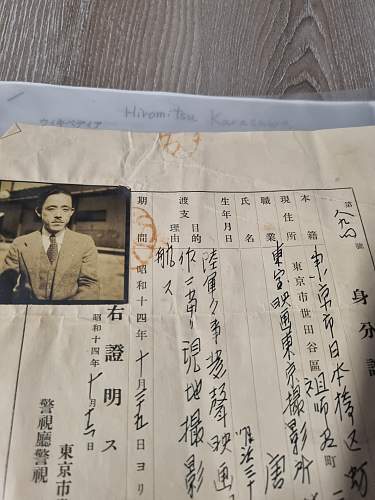 ウィキペディア
Hiromitsu Karasawa
身分證
本籍 東京市日本橋区
現住所 東京市世田谷區 祖師谷町
職業 東宝映画東京撮影所
氏名 唐
生年月日 明治三十
渡支目的理由 陸軍々事発聲映画
現地撮影
航ス
期間 昭和十四年十月二五日ヨリ
右證明ス
昭和十四年十月十二日
東京市
警視廳警視